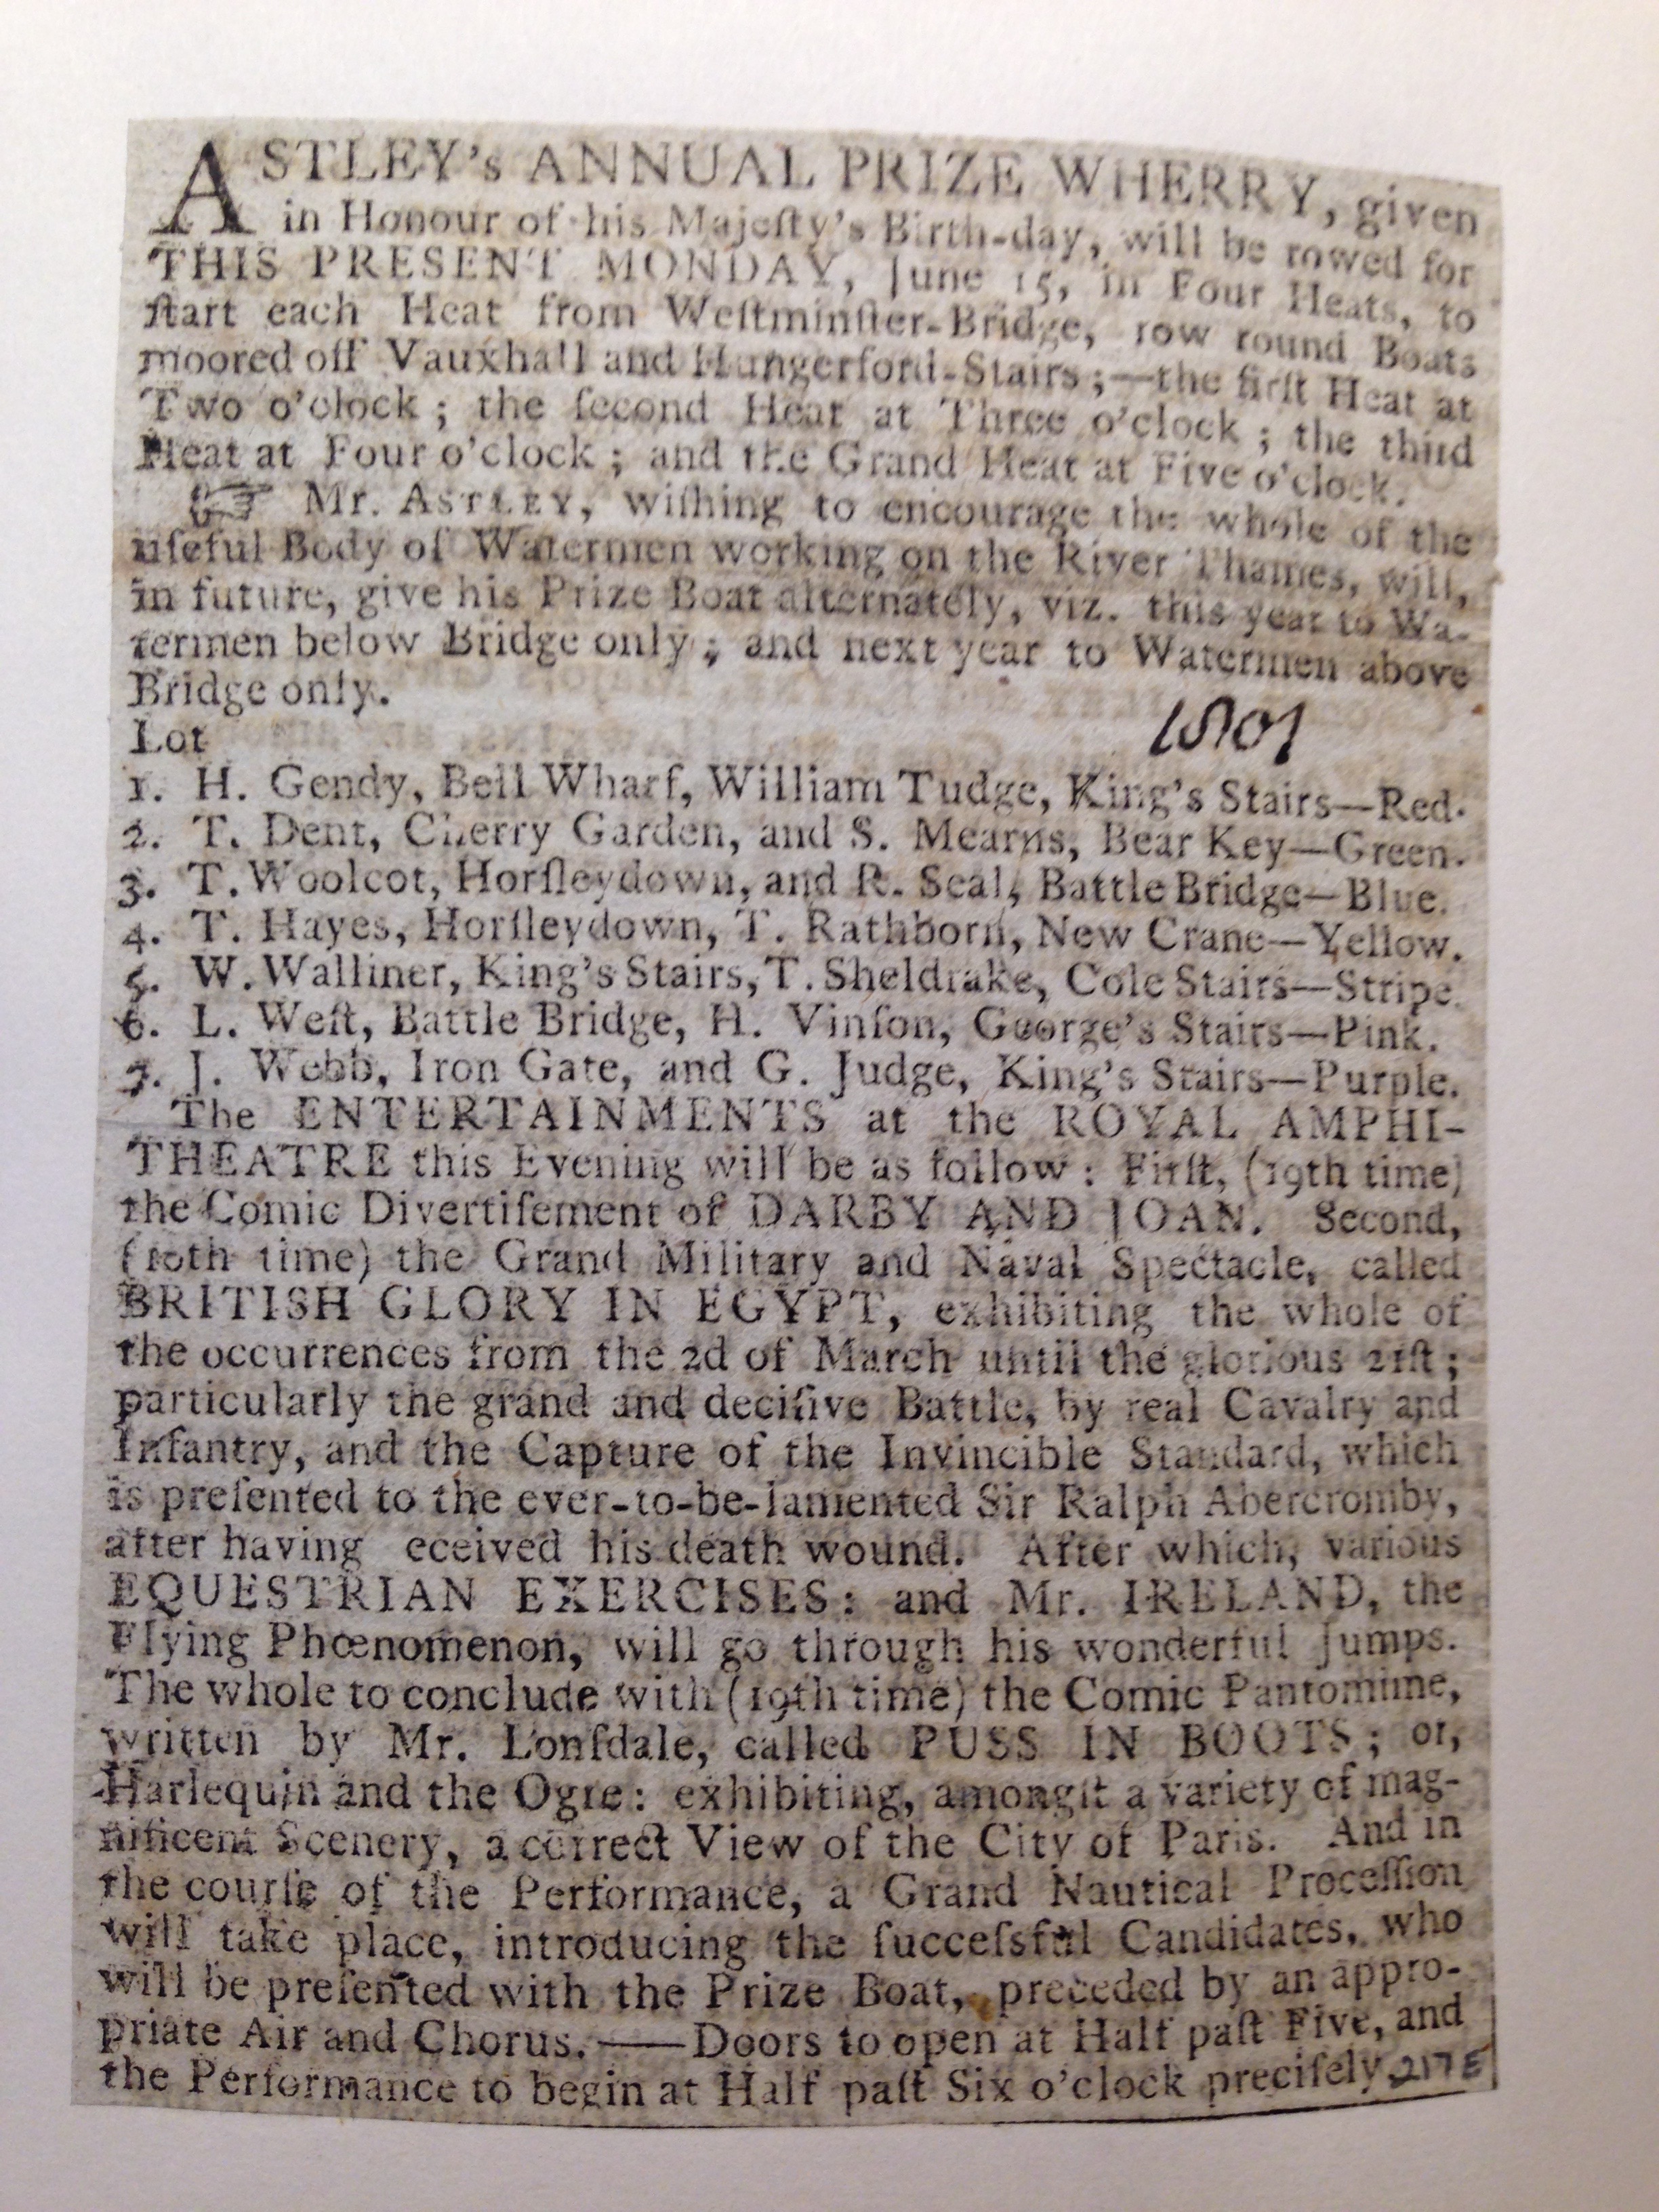 ASTLEY's ANNUAL PRIZE WHERRY, given
in Honour of his Majeſty's Birth-day, will be rowed for
THIS PRESENT MONDAY, June 15, in Four Heats, to
ſtart each Heat from Weſtminſter-Bridge, row round Boats
moored off Vauxhall and Hungerford-Stairs;—the firſt Heat at
Two o'clock; the ſecond Heat at Three o'clock; the third
Heat at Four o'clock; and the Grand Heat at Five o'clock.
☞ Mr. ASTLEY, wiſhing to encourage the whole of the
uſeful Body of Watermen working on the River Thames, will,
in future, give his Prize Boat alternately, viz. this year to Wa-
termen below Bridge only; and next year to Watermen above
Bridge only.
1801
Lot
1. H. Gendy, Bell Wharf, William Tudge, King's Stairs—Red.
2. T. Dent, Cherry Garden, and S. Mearns, Bear Key—Green.
3. T. Woolcot, Horſleydown, and R. Seal, Battle Bridge—Blue.
4. T. Hayes, Horſleydown, T. Rathborn, New Crane—Yellow.
5. W. Walliner, King's Stairs, T. Sheldrake, Cole Stairs—Stripe.
6. L. Weſt, Battle Bridge, H. Vinſon, George's Stairs—Pink.
7. J. Webb, Iron Gate, and G. Judge, King's Stairs—Purple.
The ENTERTAINMENTS at the ROYAL AMPHI-
THEATRE this Evening will be as follow: Firſt, (19th time)
the Comic Divertiſement of DARBY AND JOAN. Second,
(10th time) the Grand Military and Naval Spectacle, called
BRITISH GLORY IN EGYPT, exhibiting the whole of
the occurrences from the 2d of March until the glorious 21ſt;
particularly the grand and deciſive Battle, by real Cavalry and
Infantry, and the Capture of the Invincible Standard, which
is preſented to the ever-to-be-lamented Sir Ralph Abercromby,
after having eceived his death wound. After which, various
EQUESTRIAN EXERCISES: and Mr. IRELAND, the
Flying Phœnomenon, will go through his wonderful Jumps.
The whole to conclude with (19th time) the Comic Pantomime,
written by Mr. Lonſdale, called PUSS IN BOOTS; or,
Harlequin and the Ogre: exhibiting, amongſt a variety of mag-
nificent Scenery, a correct View of the City of Paris. And in
the courſe of the Performance, a Grand Nautical Proceſſion
will take place, introducing the ſucceſsful Candidates, who
will be preſented with the Prize Boat, preceded by an appro-
priate Air and Chorus.——Doors to open at Half paſt Five, and
the Performance to begin at Half paſt Six o'clock preciſely